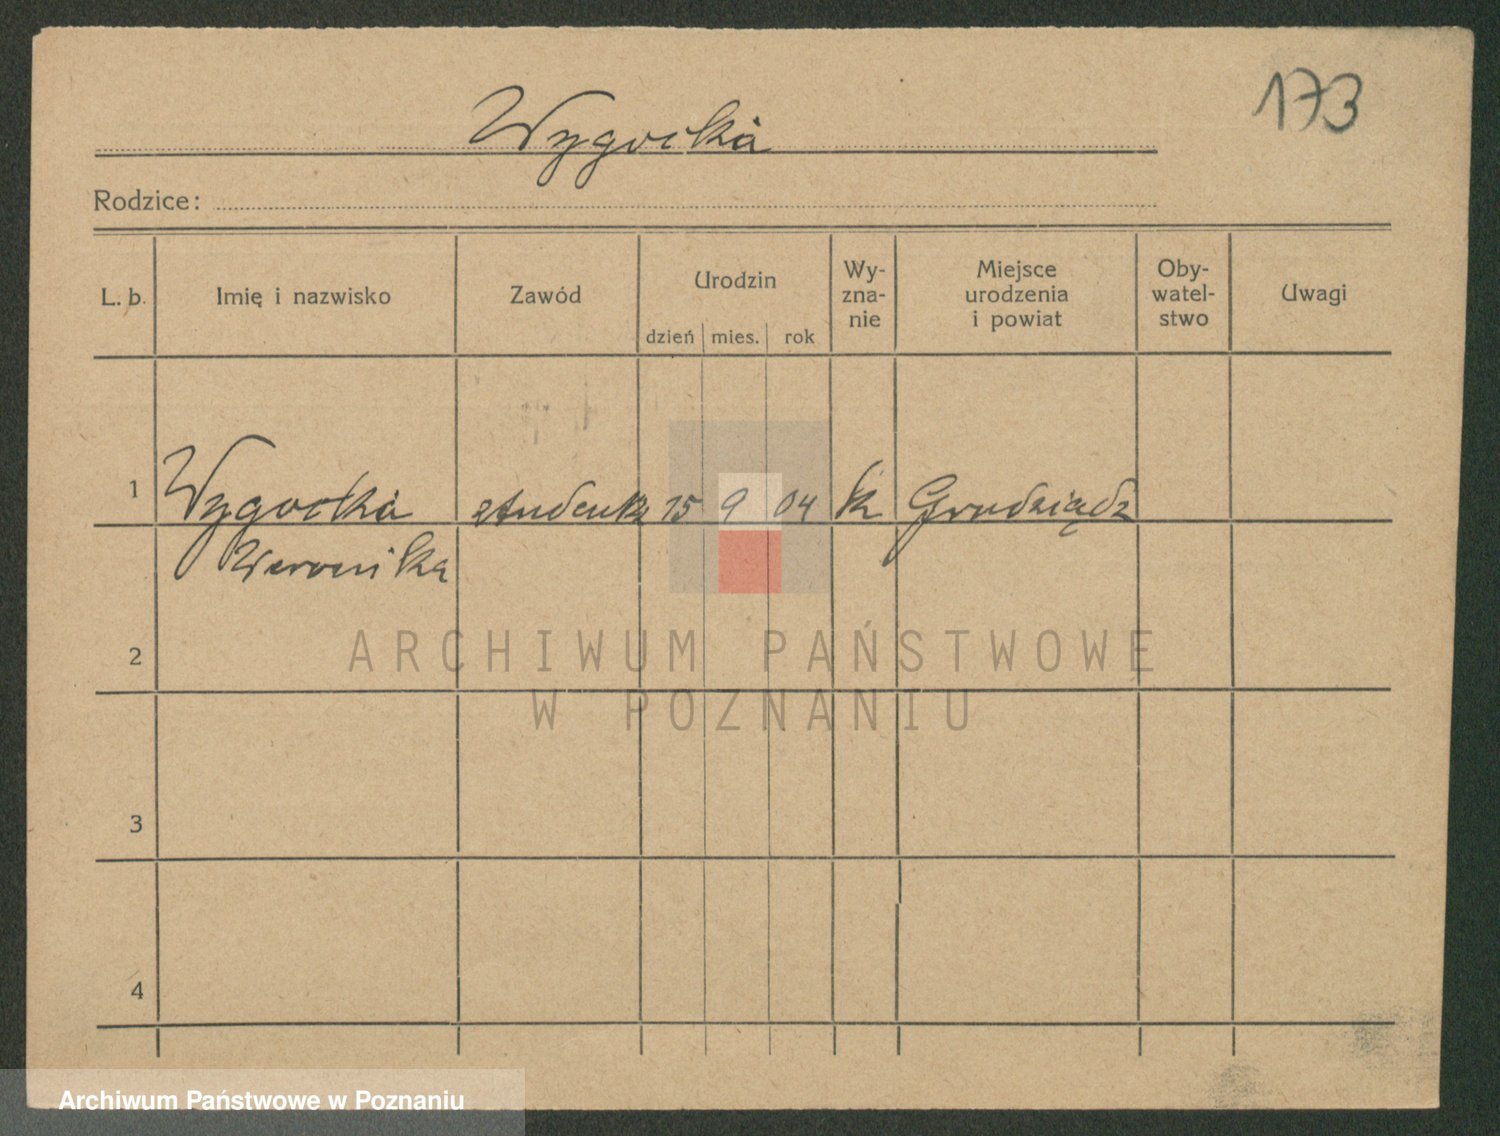 173
Wygocka
Rodzice:
L. p. Imię i nazwisko Zawód Urodzin dzień mies. rok Wy-zna-nie Miejsce urodzenia i powiat Oby-watel-stwo Uwagi
1 Wygocka studentk 15 9 04 k Grudziądz
Weronika
2
3
4
ARCHIWUM PAŃSTWOWE
W POZNANIU
Archiwum Państwowe w Poznaniu